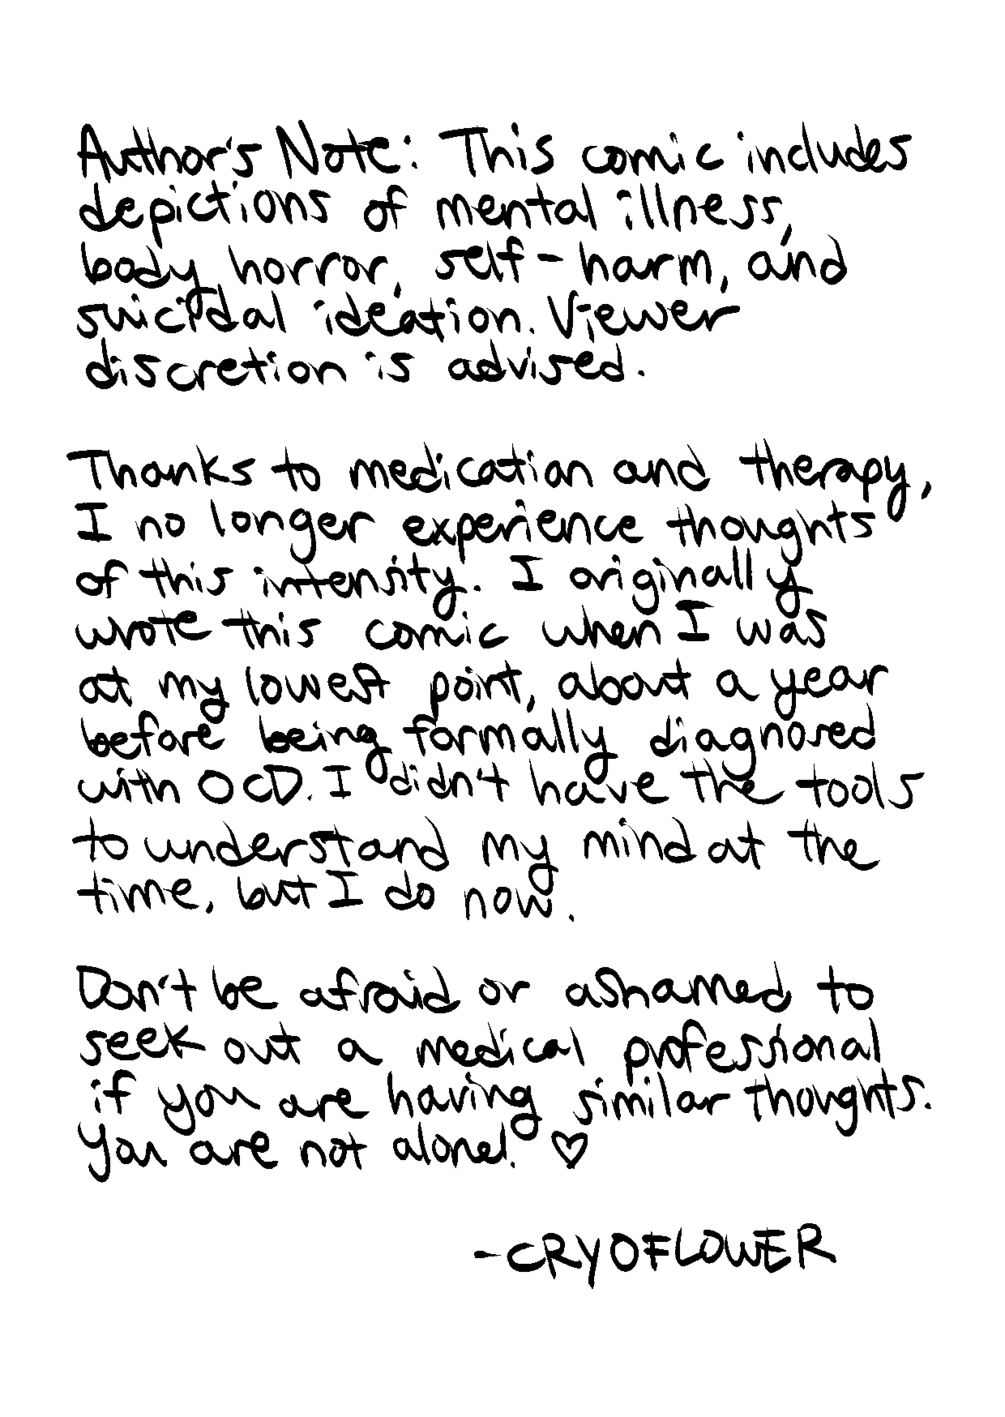 Author's Note: This comic includes
depictions of mental illness,
body horror, self-harm, and
suicidal ideation. Viewer
discretion is advised.
Thanks to medication and therapy,
I no longer experience thoughts
of this intensity. I originally
wrote this comic when I was
at my lowest point, about a year
before being formally diagnosed
with OCD. I didn't have the tools
to understand my mind at the
time, but I do now.
Don't be afraid or ashamed to
seek out a medical professional
if you are having similar thoughts.
You are not alone! ♡
-CRYOFLOWER